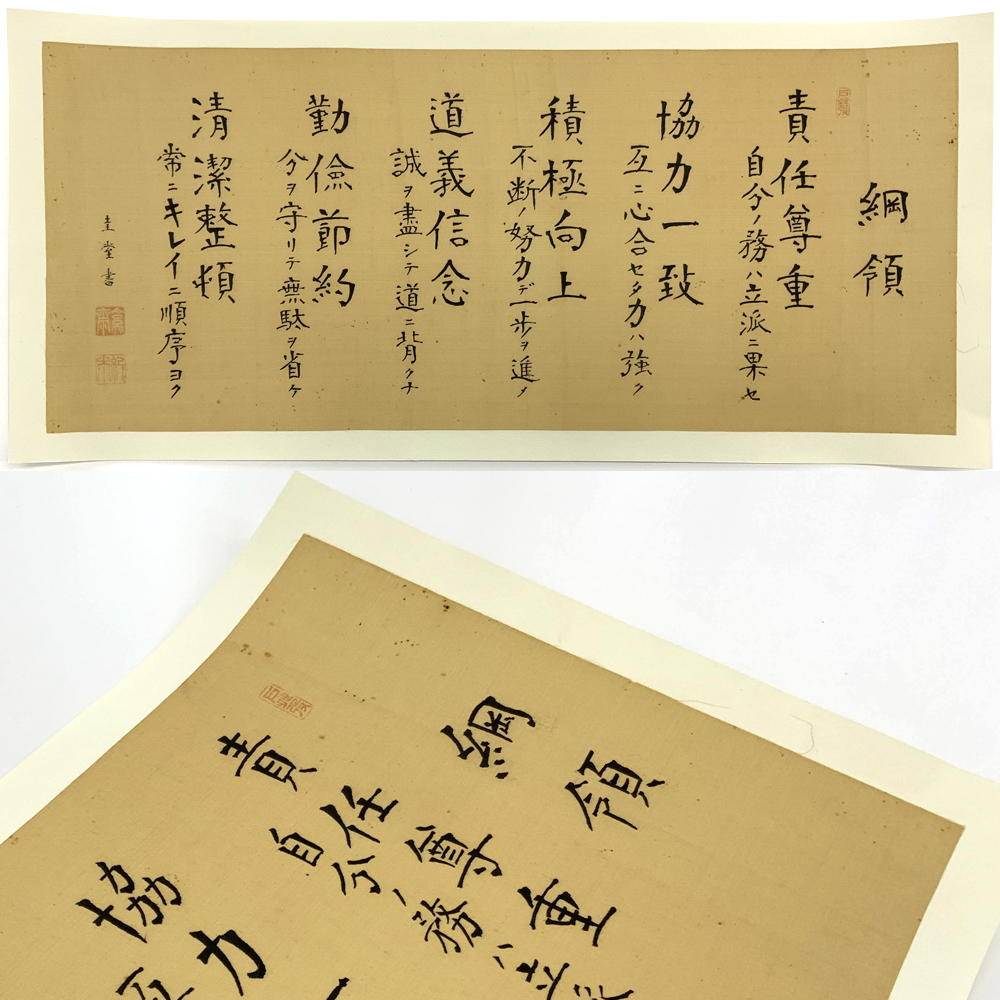 綱領
責任尊重
自分ノ務ハ立派ニ果セ
協力一致
互ニ心合セタ力ハ強ク
積極向上
不断ノ努力デ一歩ヲ進メ
道義信念
誠ヲ盡シテ道ニ背クナ
勤儉節約
分ヲ守リテ無駄ヲ省ケ
清潔整頓
常ニキレイニ順序ヨク
圭堂書
綱領
責任尊重
自分ノ務ハ立派
協力一
互